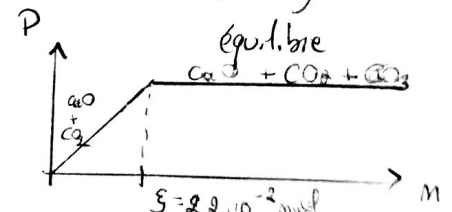 P
équilibie
CaO + CO2 + CO3
CaO
+
CO2
ξ = 2 2 . 10⁻²
M